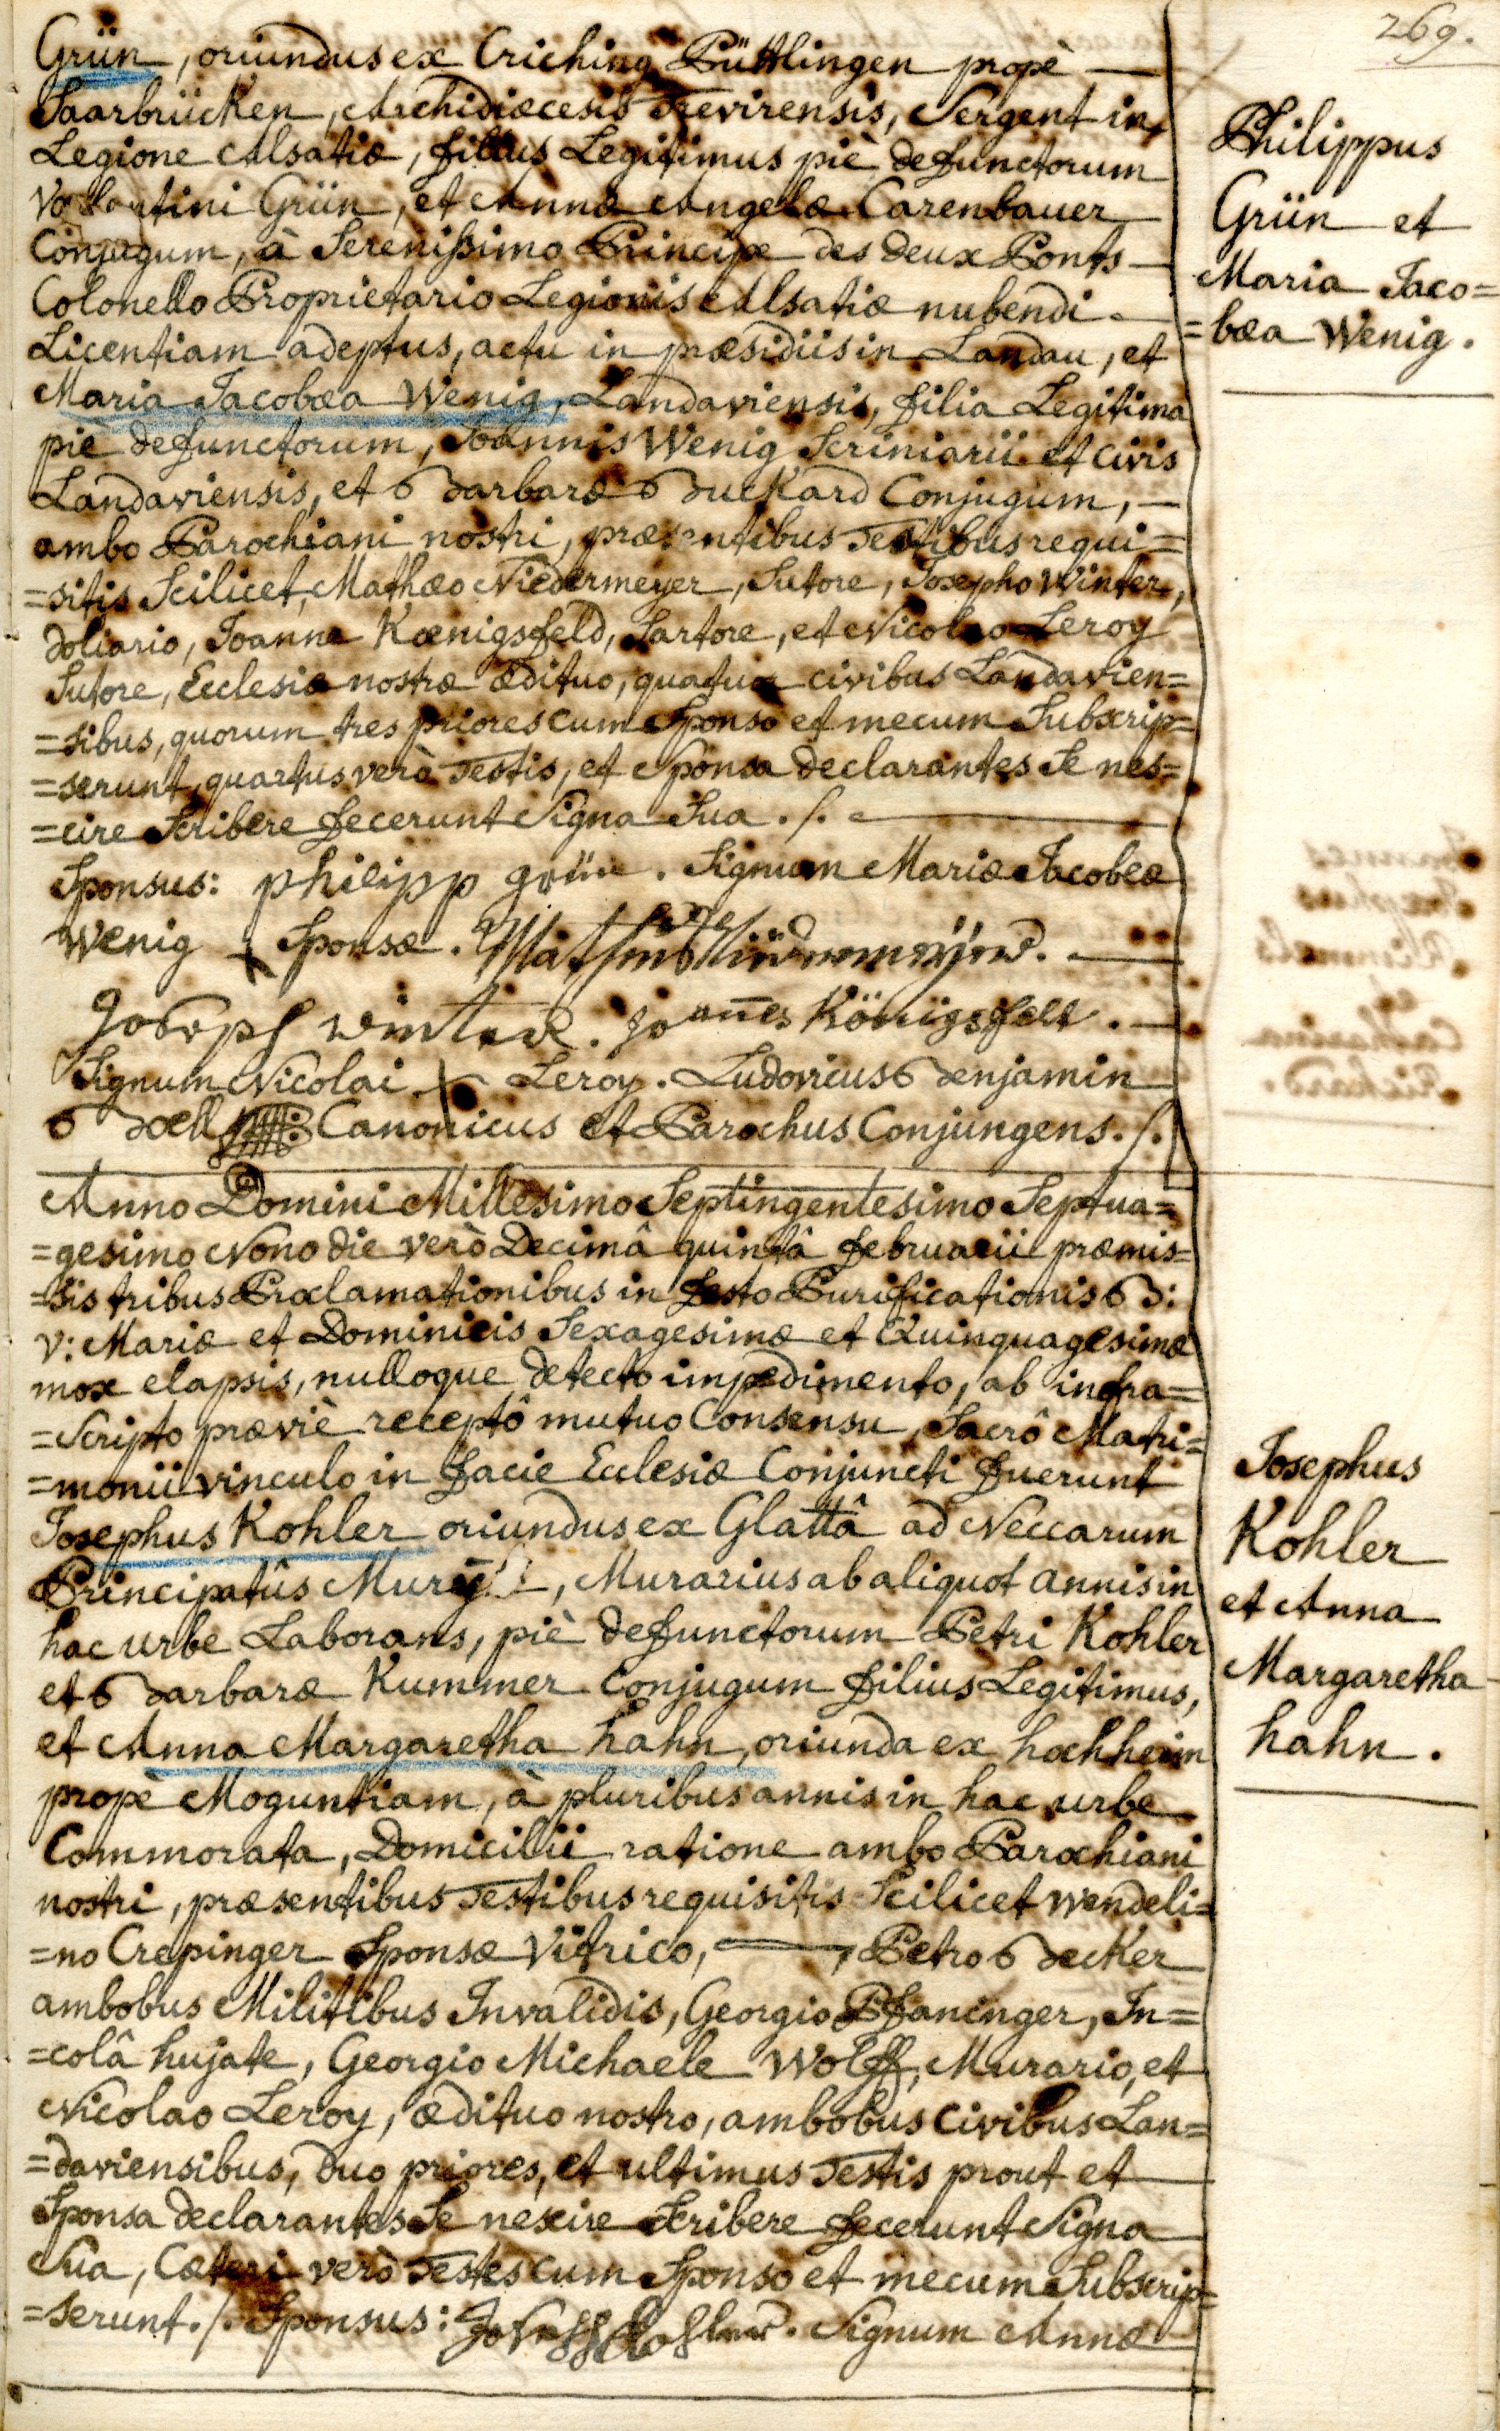 269.
Grün, oriundus ex Criching Püttlingen propè
Saarbrücken, Archidiœcesis Trevirensis, Sergent in
Legione Alsatiæ, filius Legitimus piè defunctorum
Valentini Grün, et Annæ Angelæ Carenbauer
Conjugum, à Serenissimo Principe des deux Ponts
Colonello Proprietario Legionis Alsatiæ nubendi
Licentiam adeptus, actu in præsidiis in Landau, et
Maria Jacobæa Wenig, Landaviensis, filia Legitima
piè defunctorum, Joannis Wenig Scriniarii et civis
Landaviensis, et Barbaræ Buckard Conjugum,
ambo Parochiani nostri, præsentibus Testibus requi=
=sitis Scilicet, Mathæo Niedermeyer, Sutore, Josepho Winter,
doliario, Joanne Kœnigsfeld, Sartore, et Nicolao Leroy
Sutore, Ecclesiæ nostræ ædituo, quatuor civibus Landavien=
=sibus, quorum tres priores cum Sponso et mecum Subscrip=
=serunt, quartus verò Testis, et Sponsa declarantes Se nes=
=cire Scribere fecerunt Signa Sua ./.
Sponsus: philipp grün. Signum Mariæ Jacobeæ
Wenig + Sponsæ.
Joseph winter. Joañes Königsfelt.
Signum Nicolai + Leroy. Ludovicus Benjamin
Böell Canonicus et Parochus Conjungens ./.
Anno Domini Millesimo Septingentesimo Septua=
=gesimo Nono die verò Decimâ quintâ februarii præmis=
=sis tribus Proclamationibus in festo Purificationis B:
V: Mariæ et Dominicis Sexagesimæ et Quinquagesimæ
mox elapsis, nulloque detecto impedimento, ab infra=
=Scripto præviè receptô mutuo Consensu, Sacrô Matri=
=monii vinculo in facie Ecclesiæ Conjuncti fuerunt
Josephus Kohler oriundus ex Glattâ ad Neccarum
Principatûs Mury, Murarius ab aliquot annis in
hac urbe Laborans, piè defunctorum Petri Kohler
et Barbaræ Kummer Conjugum filius Legitimus,
et Anna Margaretha hahn, oriunda ex hochheim
propè Moguntiam, à pluribus annis in hac urbe
Commorata, Domicilii ratione ambo Parochiani
nostri, præsentibus Testibus requisitis Scilicet Wendeli=
=no Crepinger Sponsæ Vitrico, Petro Becker
ambobus Militibus Invalidis, Georgio Pfaninger, In=
=colâ hujate, Georgio Michaele Wolff, Murario, et
Nicolao Leroy, ædituo nostro, ambobus Civibus Lan=
=daviensibus, duo priores, et ultimus Testis prout et
Sponsa declarantes Se nescire Scribere fecerunt Signa
Sua, Cæteri verò Testes cum Sponso et mecum Subscrip=
=serunt ./. Sponsus: Joseph Kohler. Signum Annæ
Philippus
Grün et
Maria Jaco=
=bæa Wenig.
Josephus
Kohler
et Anna
Margaretha
hahn.